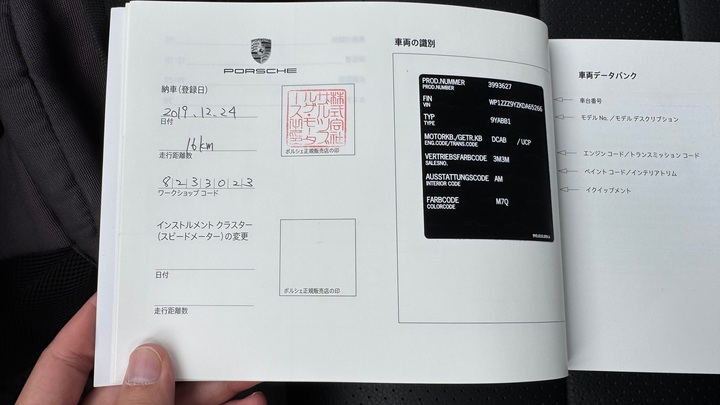 PORSCHE
納車（登録日）
2019.12.24
日付
16km
走行距離数
8 2 3 3 0 2 3
ワークショップ コード
ポルシェ正規販売店の印
インストルメント クラスター
（スピードメーター）の変更
日付
走行距離数
ポルシェ正規販売店の印
車両の識別
PROD.NUMMER 3993627
PROD.NUMBER
FIN WP1ZZZ9YZKDA65266
VIN
TYP 9YABB1
TYPE
MOTORKB./GETR.KB DCAB / UCP
ENG.CODE/TRANS.CODE
VERTRIEBSFARBCODE 3M3M
SALESNO.
AUSSTATTUNGSCODE AM
INTERIOR CODE
FARBCODE M7Q
COLORCODE
車両データバンク
車台番号
モデル No.／モデル デスクリプション
エンジン コード／トランスミッション コード
ペイント コード／インテリアトリム
イクイップメント